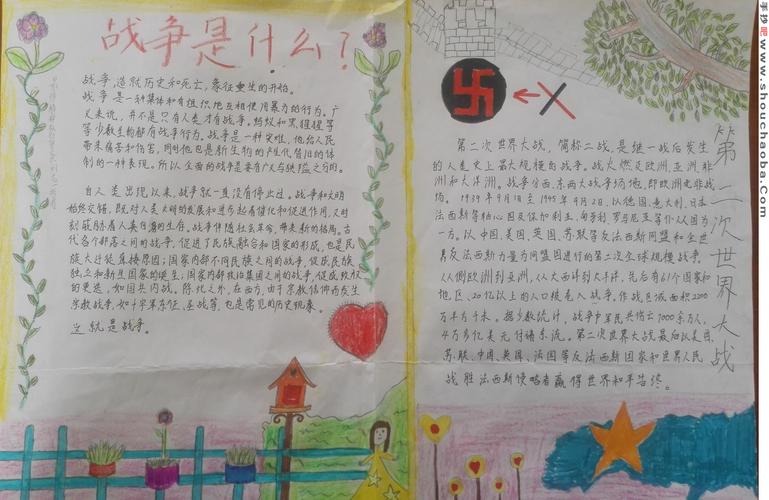 战争是什么?
战争,造就历史和死亡,象征重生的开始。
战争是一种集体和有组织地互相使用暴力的行为。广
义来说,并不是只有人类才有战争。蚂蚁和黑猩猩等
等少数生物都有战争行为。战争是一种灾难,他给人民
带来痛苦和伤害,同时他也是新生物的产生代替旧的体
制的一种表现。所以全面的战争是要有广义与狭义之分的。
自人类出现以来,战争就一直没有停止过。战争和文明
始终交错,既对人类文明的发展和进步起着催化和促进作用,又时
刻威胁着人类自身的生存。战争伴随社会革命,带来新的格局。古
代各个部落之间的战争,促进了民族融合和国家的形成,也是民
族大迁徙直接原因;国家内部不同民族之间的战争,促成民族
独立和新生国家的诞生;国家内部政治集团之间的战争,促成政权
的更迭,如国共内战。除此之外,在西方,由于宗教信仰而发生
宗教战争,如十字军东征、圣战等,也是常见的历史现象。
这就是战争。
第二次世界大战
第二次世界大战,简称二战,是继一战后发生
的人类史上最大规模的战争。战火燃及欧洲,亚洲,非
洲和大洋洲。战争分西、东两大战争场地,即欧洲北非战
场。1939年9月1日至1945年9月2日,以德国,意大利,日本
法西斯等轴心国及保加利亚,匈牙利,罗马尼亚等仆从国为
一方。以中国、美国、英国、苏联等反法西斯同盟和全世
界反法西斯力量为同盟国进行的第二次全球规模战争,
从欧洲到亚洲,从大西洋到太平洋,先后有61个国家和
地区、20亿以上的人口被卷入战争,作战区域面积2200
万平方千米。据少数统计,战争中军民共伤亡7000余万人,
4万多亿美元付诸东流。第二次世界大战最后以美国、
苏联、中国、英国、法国等反法西斯国家和世界人民
战胜法西斯侵略者赢得世界和平告终。
手抄吧 www.shouchaoba.com